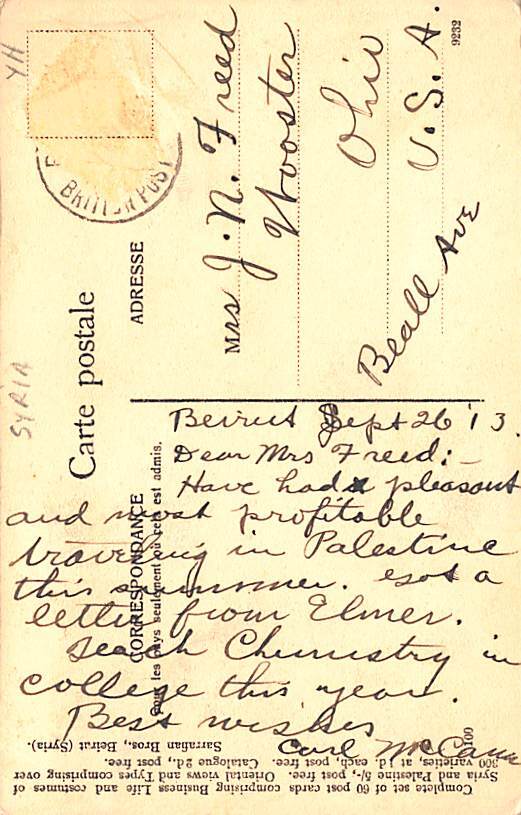 YH
SYRIA
Carte postale
ADRESSE
CORRESPONDANCE
Tous les pays seulement où cela est admis.
BRITISH POST
9232
Mrs J. N. Freed
Wooster
Ohio
U. S. A.
Beall Ave
Beirut Sept 26 '13.
Dear Mrs Freed:-
Have had a pleasant
and most profitable
traveling in Palestine
this summer. Got a
letter from Elmer.
Teach Chemistry in
college this year.
Best wishes
Carl McCann
100
Complete set of 60 post cards comprising Business Life and costumes of
Syria and Palestine 5/-, post free. Oriental views and Types comprising over
300 varieties, at 1d. each, post free. Catalogue 2d., post free.
Sarrafian Bros., Beirut (Syria).